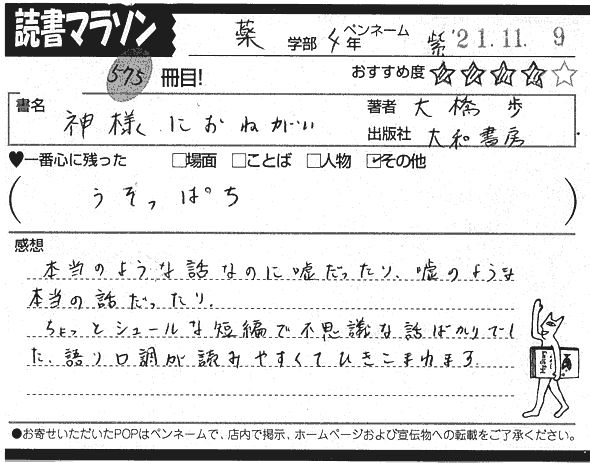 読書マラソン
薬 学部 4年 ペンネーム 紫 '21.11.9
575 冊目!
おすすめ度 ★★★★☆
書名 神様におねがい
著者 大橋 歩
出版社 大和書房
♥一番心に残った □場面 □ことば □人物 ☑その他
( うそっぱち )
感想
本当のような話なのに嘘だったり、嘘のような
本当の話だったり。
ちょっとシュールな短編で不思議な話ばかりでし
た。語り口調が読みやすくてひきこまれます
●お寄せいただいたPOPはペンネームで、店内で掲示、ホームページおよび宣伝物への転載をご了承ください。